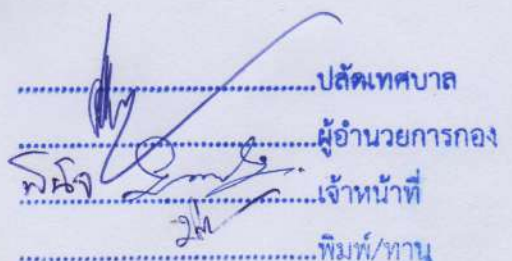 ....................ปลัดเทศบาล
....................ผู้อำนวยการกอง
พินิจ ....................เจ้าหน้าที่
....................พิมพ์/ทาน